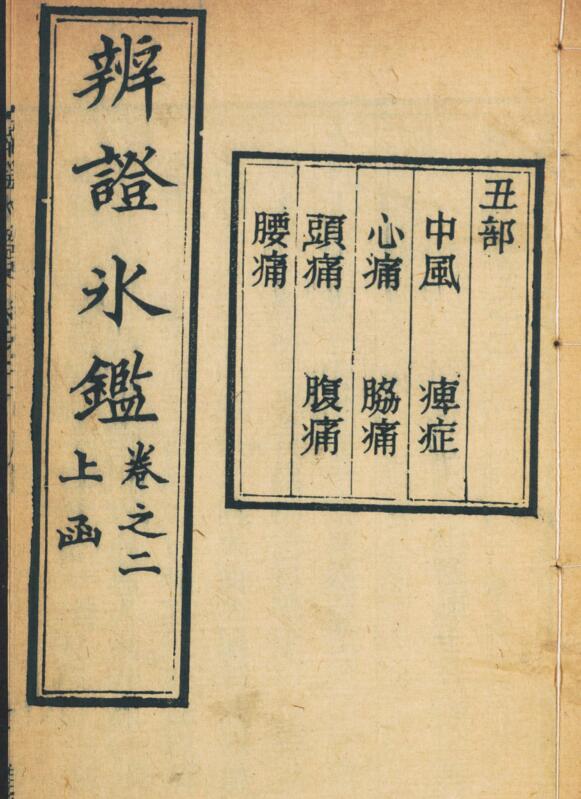 丑部
中風　痺症
心痛　脇痛
頭痛　腹痛
腰痛
辨證氷鑑
卷之二
上函